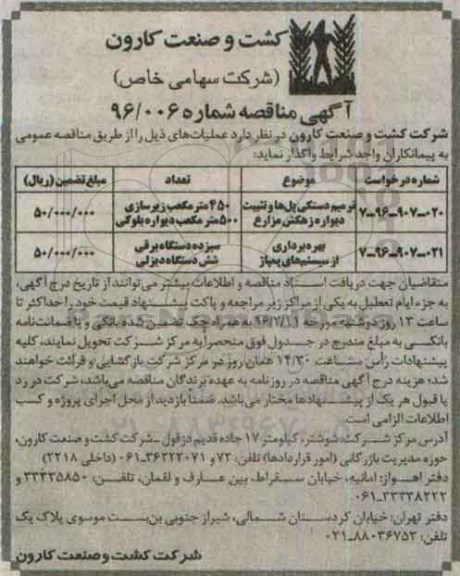 کشت و صنعت کارون
(شرکت سهامی خاص)
آگهی مناقصه شماره ۹۶/۰۰۶
شرکت کشت و صنعت کارون در نظر دارد عملیات‌های ذیل را از طریق مناقصه عمومی
به پیمانکاران واجد شرایط واگذار نماید:
شماره درخواست موضوع تعداد مبلغ تضمین (ریال)
۷-۹۶-۹۰۷-۰۲۰ ترمیم دستکی پل‌ها و تثبیت دیواره زهکش مزارع ۴۵۰ متر مکعب زیرسازی ۵۰۰ متر مکعب دیواره بلوکی ۵۰/۰۰۰/۰۰۰
۷-۹۶-۹۰۷-۰۲۱ بهره برداری از سیستم‌های پمپاژ سیزده دستگاه برقی شش دستگاه دیزلی ۵۰/۰۰۰/۰۰۰
متقاضیان جهت دریافت اسناد مناقصه و اطلاعات بیشتر می‌توانند از تاریخ درج آگهی،
به جزء ایام تعطیل به یکی از مراکز زیر مراجعه و پاکت پیشنهاد قیمت خود را حداکثر تا
ساعت ۱۳ روز دوشنبه مورخه ۹۶/۷/۱۱ به همراه چک تضمین شده بانکی و یا ضمانت‌نامه
بانکی به مبلغ مندرج در جدول فوق منحصراً به مرکز شرکت تحویل نمایند، کلیه
پیشنهادات رأس ساعت ۱۴/۳۰ همان روز در مرکز شرکت بازگشایی و قرائت خواهند
شد؛ هزینه درج آگهی مناقصه در روزنامه به عهده برندگان مناقصه می‌باشد، شرکت در رد
یا قبول هر یک از پیشنهادها مختار می‌باشد. ضمناً بازدید از محل اجرای پروژه و کسب
اطلاعات الزامی است.
آدرس مرکز شرکت: شوشتر، کیلومتر ۱۷ جاده قدیم دزفول - شرکت کشت و صنعت کارون،
حوزه مدیریت بازرگانی (امور قراردادها) تلفن: ۷۲ و ۳۶۲۲۲۰۷۱-۰۶۱ (داخلی ۲۲۱۸)
دفتر اهواز: امانیه، خیابان سقراط، بین عارف و لقمان، تلفن: ۳۳۳۳۵۸۵۰ و
۳۳۳۳۸۲۲۲-۰۶۱
دفتر تهران: خیابان کردستان شمالی، شیراز جنوبی بن‌بست موسوی پلاک یک
تلفن: ۸۸۰۳۶۷۵۳-۰۲۱
شرکت کشت و صنعت کارون